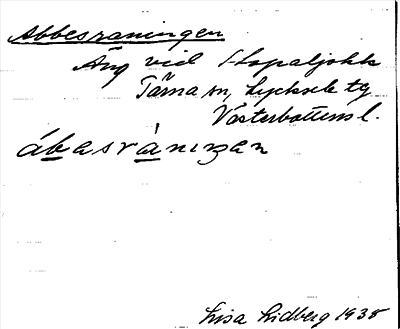 Abbesraningen
Äng vid Stapaljokk
Tärna sn, Lycksele tg
Västerbottens l.
ábasránıŋan
Lisa Lidberg 1938